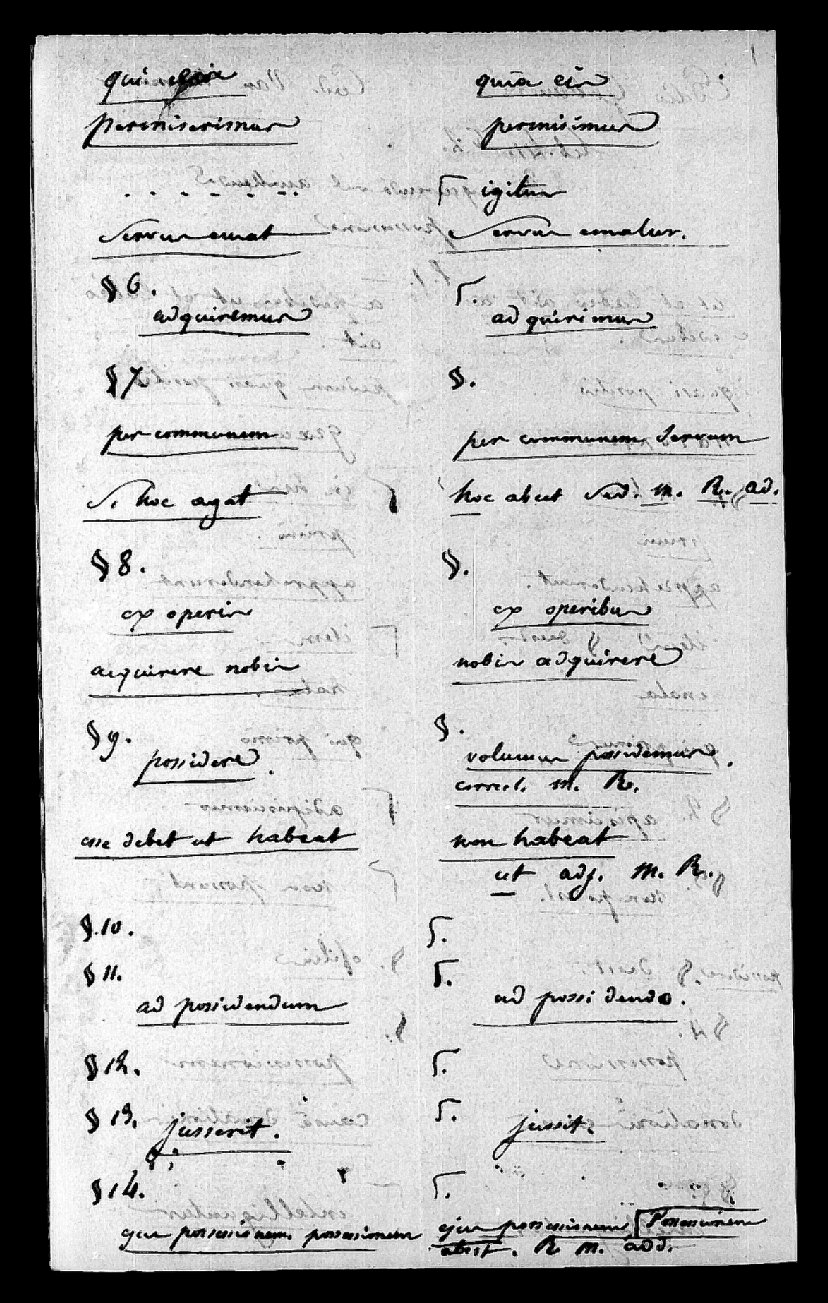 quia eis
permiserimus permisimus
igitur
Servus emat Servus ematur.
§ 6. §.
adquiremus adquirimus
§ 7 §.
per communem per communem Servum
Si hoc agat hoc abest Sed. m. R. ad.
§ 8. §.
ex operis ex operibus
acquirere nobis nobis adquirere
§ 9. §.
possidere. volumus possidemus.
correct. m. R.
esse debet ut habeat non habeat
ut adj. m. R.
§. 10. §.
§ 11. §.
ad possidendum ad possidendo.
§ 12. §.
§ 13. §.
jusserit. jussit.
§ 14. §.
ejus possessionem possessionem ejus possessionem possessionem
abest. R. m. add.